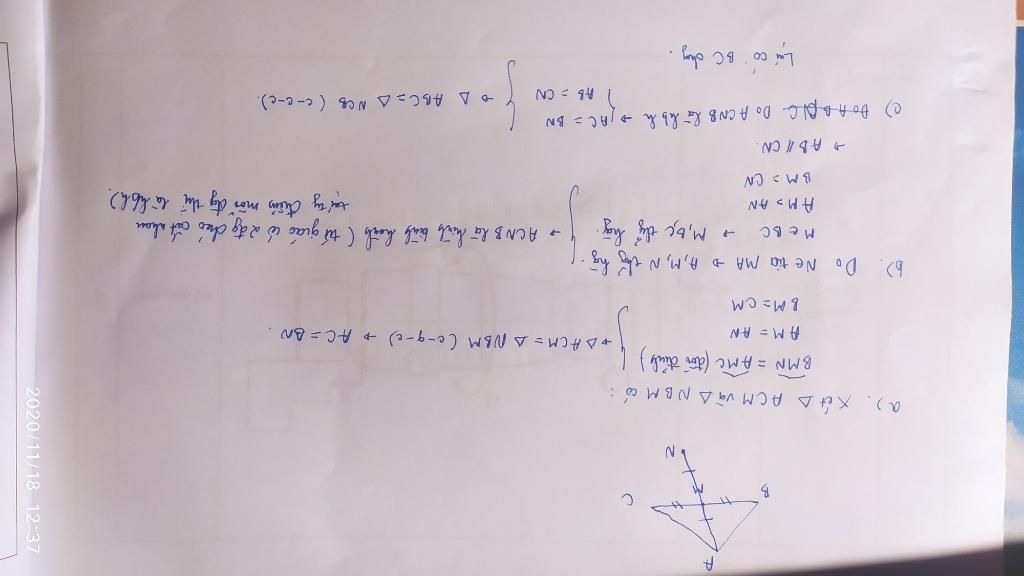 A
B
M
C
N
a). Xét Δ ACM và Δ NBM có:
BMN = AMC (đối đỉnh)
AM = AN
BM = CM
→ Δ ACM = Δ NBM (c-g-c) → AC = BN
b). Do N∈ tia MA → A, M, N thẳng hàng.
M ∈ BC → M, B, C thẳng hàng.
AM = AN
BM = CN
→ ACNB là hình bình hành (tứ giác có 2 đg chéo cắt nhau
tại trung điểm mỗi đg thì là hbh)
→ AB // CN.
c) Do ACNB là hbh → AC = BN
AB = CN
Lại có BC chung.
→ Δ ABC = Δ NCB (c-c-c).
2020/11/18 12:37